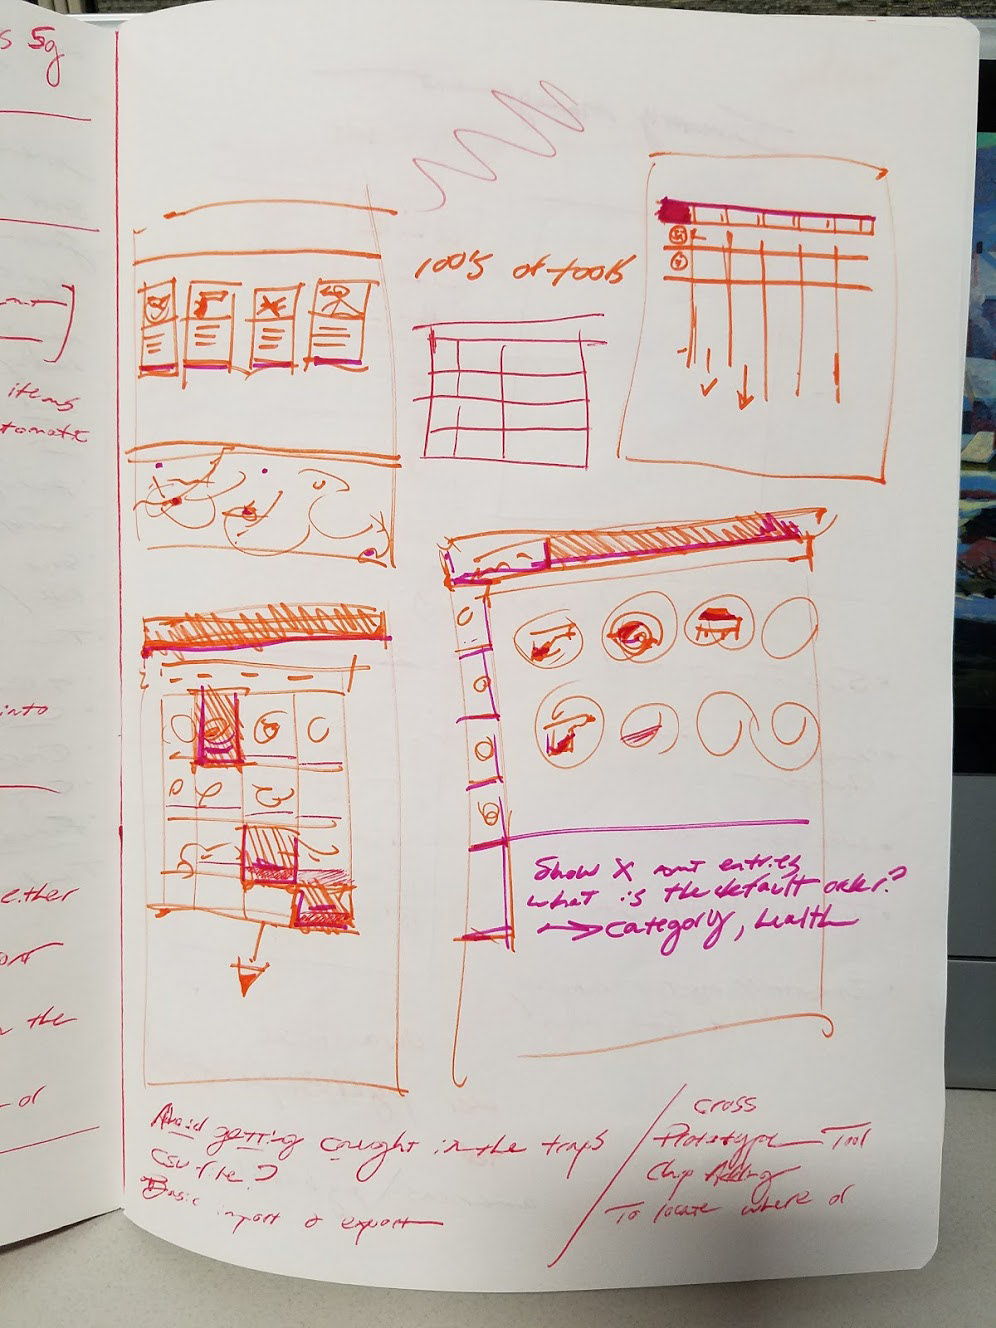 s 5g
items
tomatic
into
ether
the
of
100's of tools
Show X amt entries
what is the default order?
→ category, health
Avoid getting caught in the traps
CSV file?
Basic import & export
Cross
Prototype Tool
Chip Adding
To locate where of